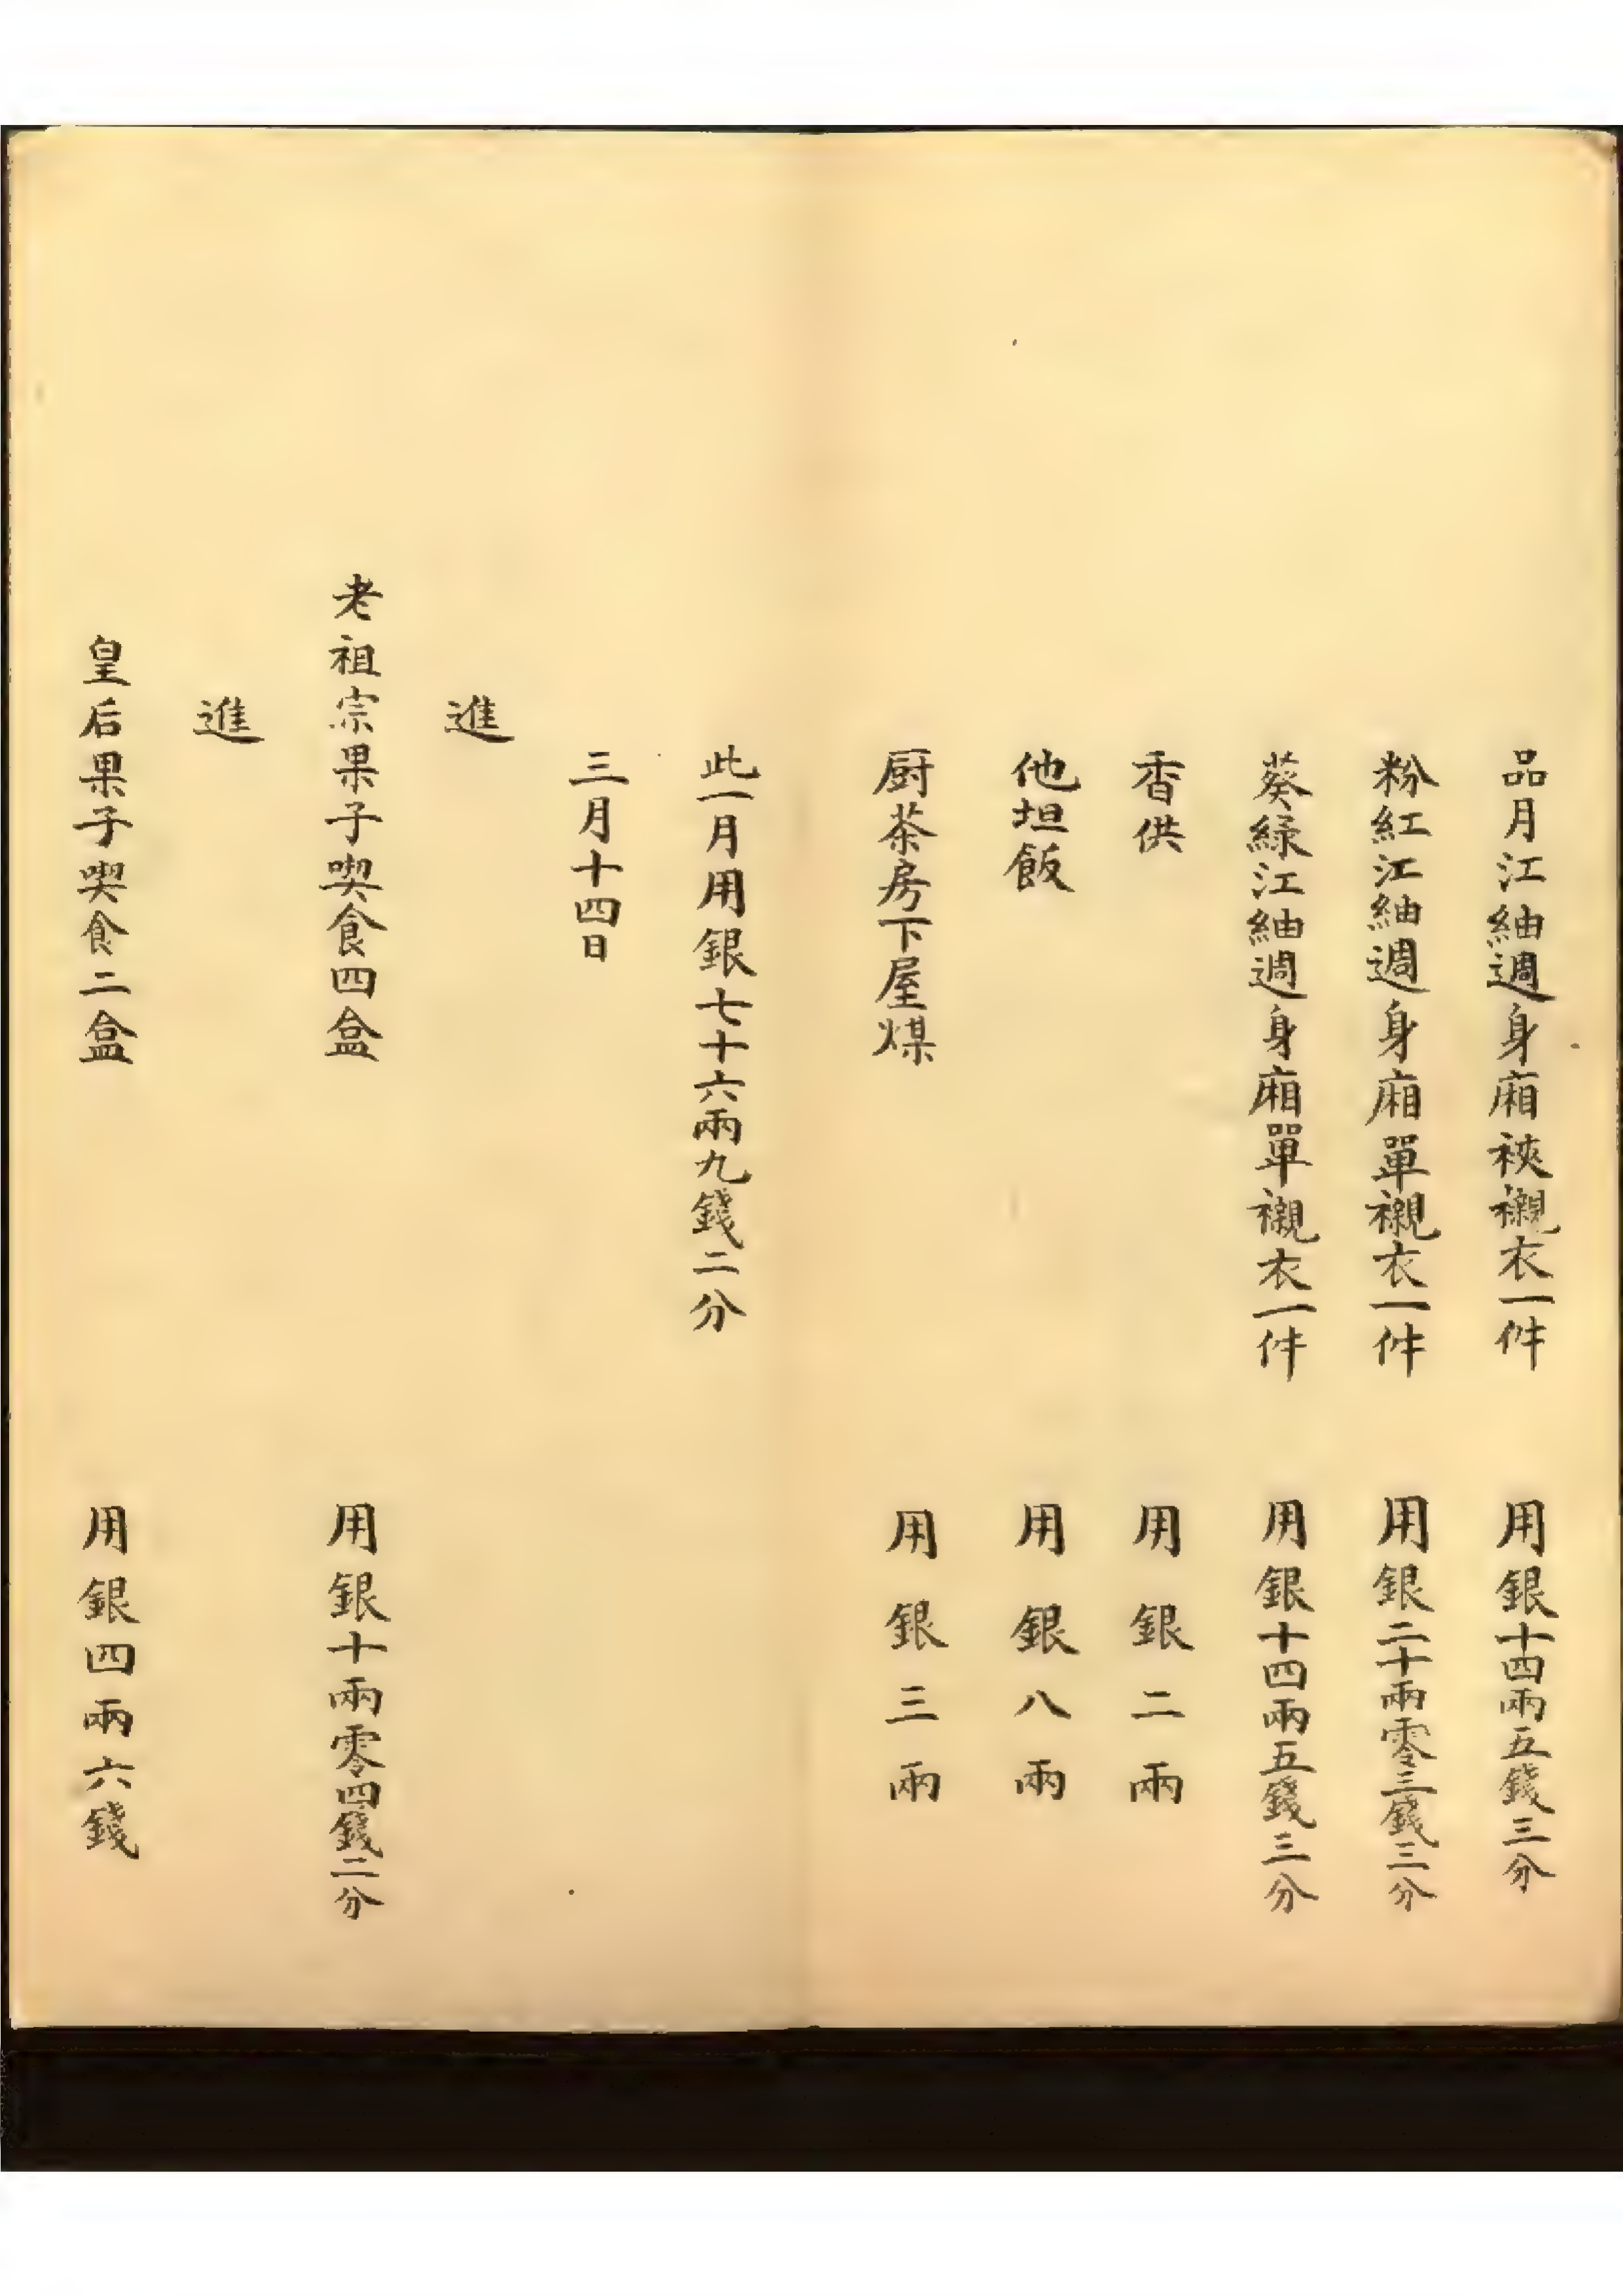 品月江紬週身廂裌襯衣一件 用銀十四兩五錢三分
粉紅江紬週身廂單襯衣一件 用銀二十兩零三錢三分
葵綠江紬週身廂單襯衣一件 用銀十四兩五錢三分
香供 用銀二兩
他坦飯 用銀八兩
厨茶房下屋煤 用銀三兩
此一月用銀七十六兩九錢二分
三月十四日
進
老祖宗果子喫食四盒 用銀十兩零四錢二分
進
皇后果子喫食二盒 用銀四兩六錢